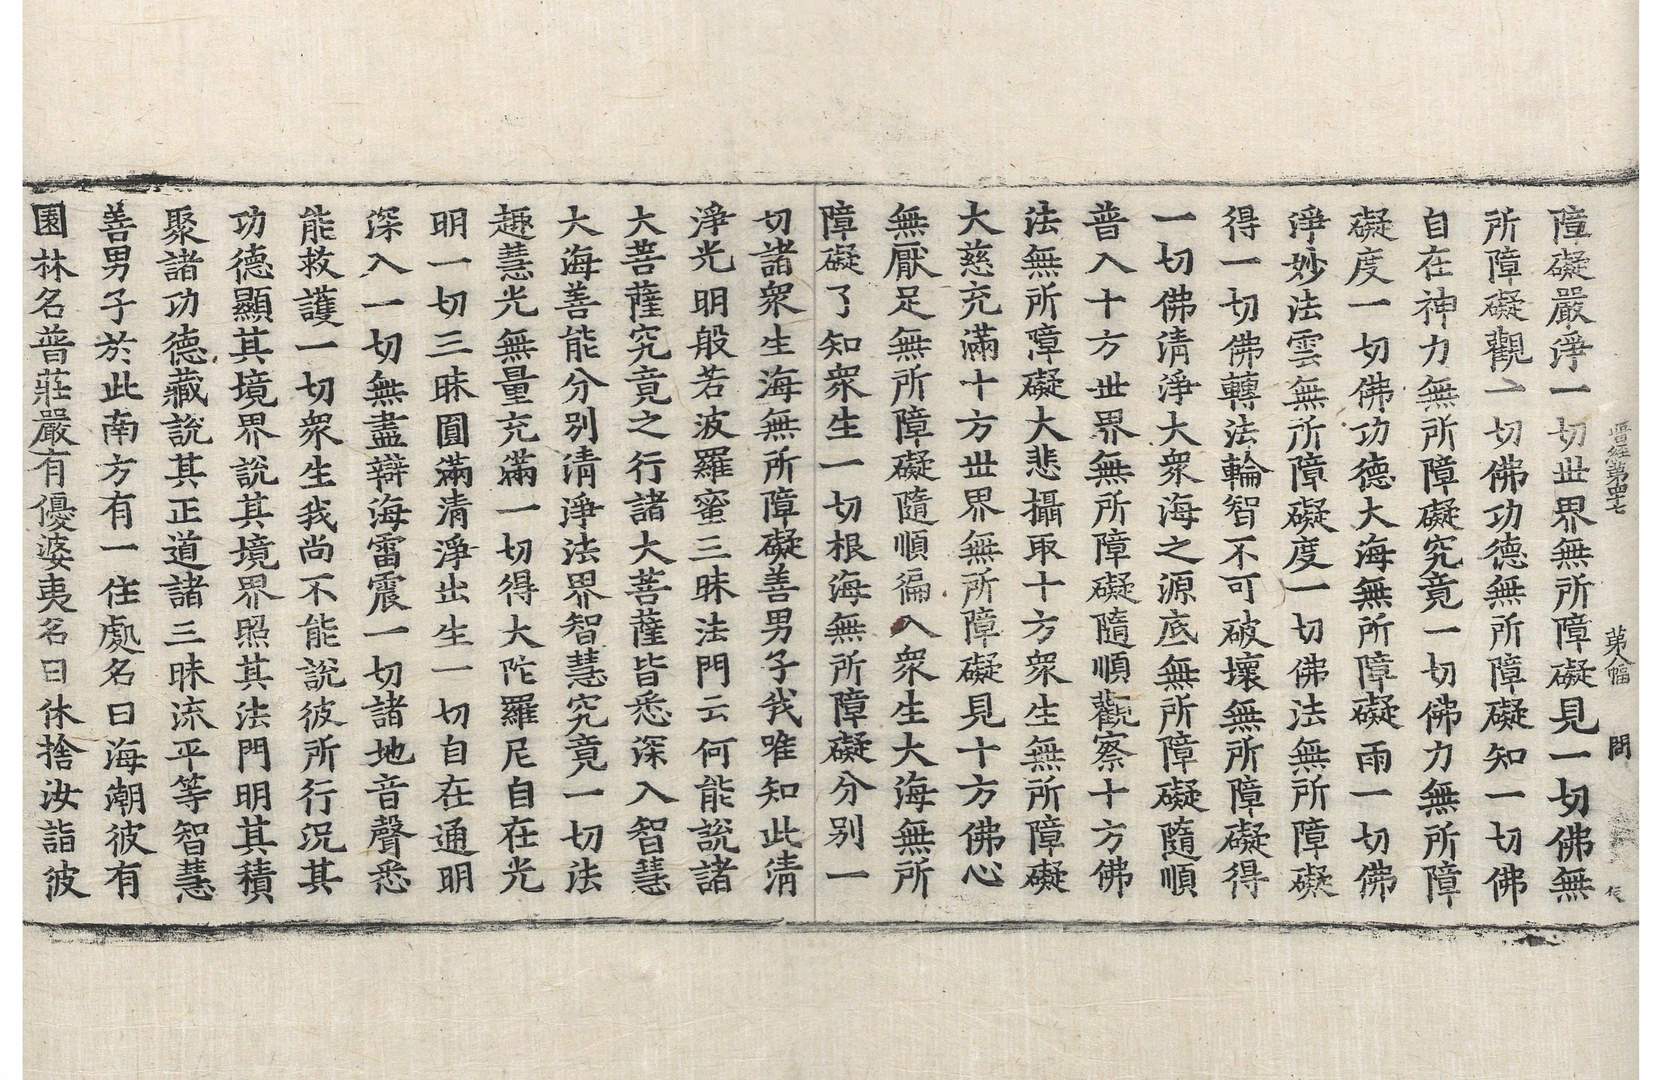 晉經第四七　第八幅　問
障礙嚴淨一切世界無所障礙見一切佛無
所障礙觀一切佛功德無所障礙知一切佛
自在神力無所障礙究竟一切佛力無所障
礙度一切佛功德大海無所障礙雨一切佛
淨妙法雲無所障礙度一切佛法無所障礙
得一切佛轉法輪智不可破壞無所障礙得
一切佛清淨大衆海之源底無所障礙隨順
普入十方世界無所障礙隨順觀察十方佛
法無所障礙大悲攝取十方衆生無所障礙
大慈充滿十方世界無所障礙見十方佛心
無厭足無所障礙隨順徧入衆生大海無所
障礙了知衆生一切根海無所障礙分別一
切諸衆生海無所障礙善男子我唯知此清
淨光明般若波羅蜜三昧法門云何能說諸
大菩薩究竟之行諸大菩薩皆悉深入智慧
大海善能分別清淨法界智慧究竟一切法
趣慧光無量充滿一切得大陀羅尼自在光
明一切三昧圓滿清淨出生一切自在通明
深入一切無盡辯海雷震一切諸地音聲悉
能救護一切衆生我尚不能說彼所行況其
功德顯其境界說其境界照其法門明其積
聚諸功德藏說其正道諸三昧流平等智慧
善男子於此南方有一住處名曰海潮彼有
園林名普莊嚴有優婆夷名曰休捨汝詣彼